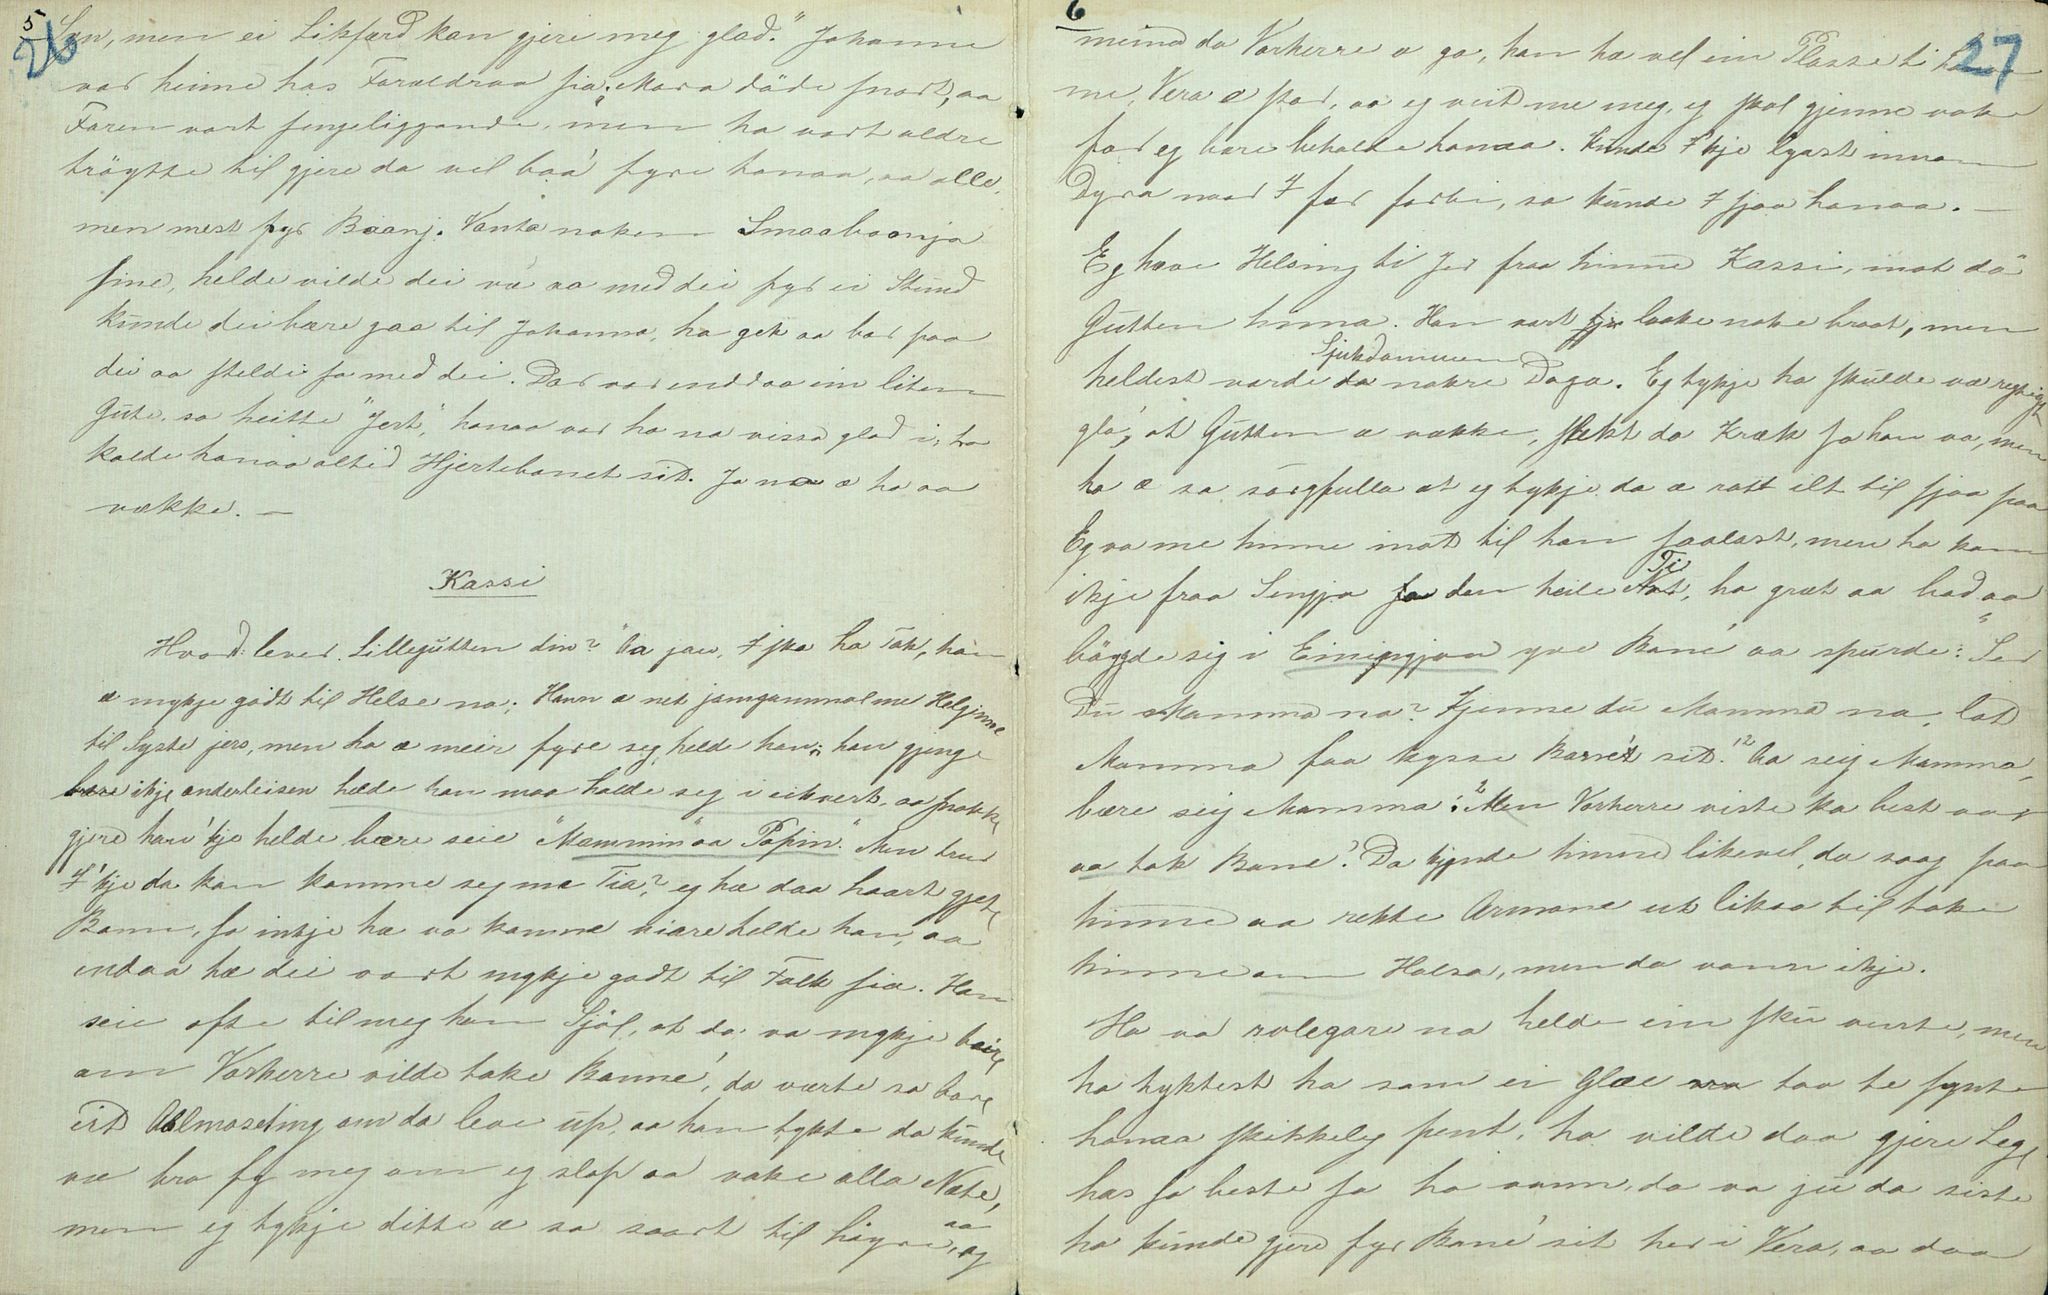 5
26
Søn, men ei Likfærd kan gjere meg glad." Johanne
var heime has Foraldraa sia. Mora döde snart, aa
Faren vart sengeliggande, men ho vart aldre
tröytte til gjere da vel baa' fyre honaa, aa alle,
men mest fyr Baanj. Vanta noken Smaabaanja
sine, helde vilde dei væ aa med dei fyr ei Stund
kunde dei bære gaa til Johanna, ho gek aa bar paa
dei aa stelde so med dei. Dar var enddaa ein liten
Gute, so heitte "Jert", honaa var ho no vissa glad i, ho
kalde honaa altid Hjertebonet sit. Ja no æ ho aa
vække. —
Kassi
Hvor lever Lillegutten din? "Aa jau, I ska ha Tak, han
æ mykje godt til Helse no; Hann æ net jamgammal me Helginne
til Lyste jero, men ho æ meir fyre seg helde han; han gjenge
ikje anderleisen helde han maa halde seg i eikvert, aa snakke
gjere han 'kje helde bære seie "Mammin" aa "Papin". Men trur
I 'kje da kan komme seg me Tia? eg hæ daa haart gjete
Bonn, so inkje hæ va komne viare helde han, aa
endaa hæ dei vort mykje godt til Folk sia. Han
seie ofte til meg han Sjöl, at da va mykje beire
om Vorherre vilde take Bonne', da værte so bare
eit Aalmoseting om da leve up, aa han tykte da kunde
væ bra fy meg om eg slap aa vake alla Næte,
men eg tykje ditte æ so saart til höyre, aa eg
6
27
meina da Vorherre æ go, han hæ vel ein Plasse ti
me, Vera æ stor, aa eg veit me meg, eg skal gjenne vake
før eg bare behalde honaa. Kunde I 'kje lyast innom
Dyra naar I før forbi, so kunde I sjaa honaa. —
Eg have Helsing ti Jer fraa hinne Kassi, inat dö
Gutten hinna. Han vart laake noke braat, men
heldest varde da Sjukdommen nokre Daga. Eg tykje ho skulde væ regtigt
gla', at Gutten æ vække, slikt da Kræk so han va, men
ho æ so sörgfulla at eg tykje da æ rott ilt til sjaa paa
Eg va me hinne inat til han saalast, men ho kom
ikje fraa Sengja den heile Ti, ho græt aa bad aa
böygde seg i Einingjaa yve Bone' aa spurde: "Ser
Du Mamma no? Kjenne du Mamma no, lat
Mamma faa kysse Barnet sit." Aa seig Mamma,
bære seig Mamma". Men Vorherre viste ka best var
aa tok Bone'. Da kjende hinne likevel, da saag paa
hinne aa rekte Armane ut liksa til take
hinne om Halsa, men da vann ikje.
Ho va rolegare no helde ein sku venta, men
ho tyktest ha som ei Glæe taa te synte
honaa skikkeleg pent, ho vilde daa gjere Legge
has so beste so ho vann, da va ju da siste
ho kunde gjere fyr Bone' sit her i Vera, aa daa